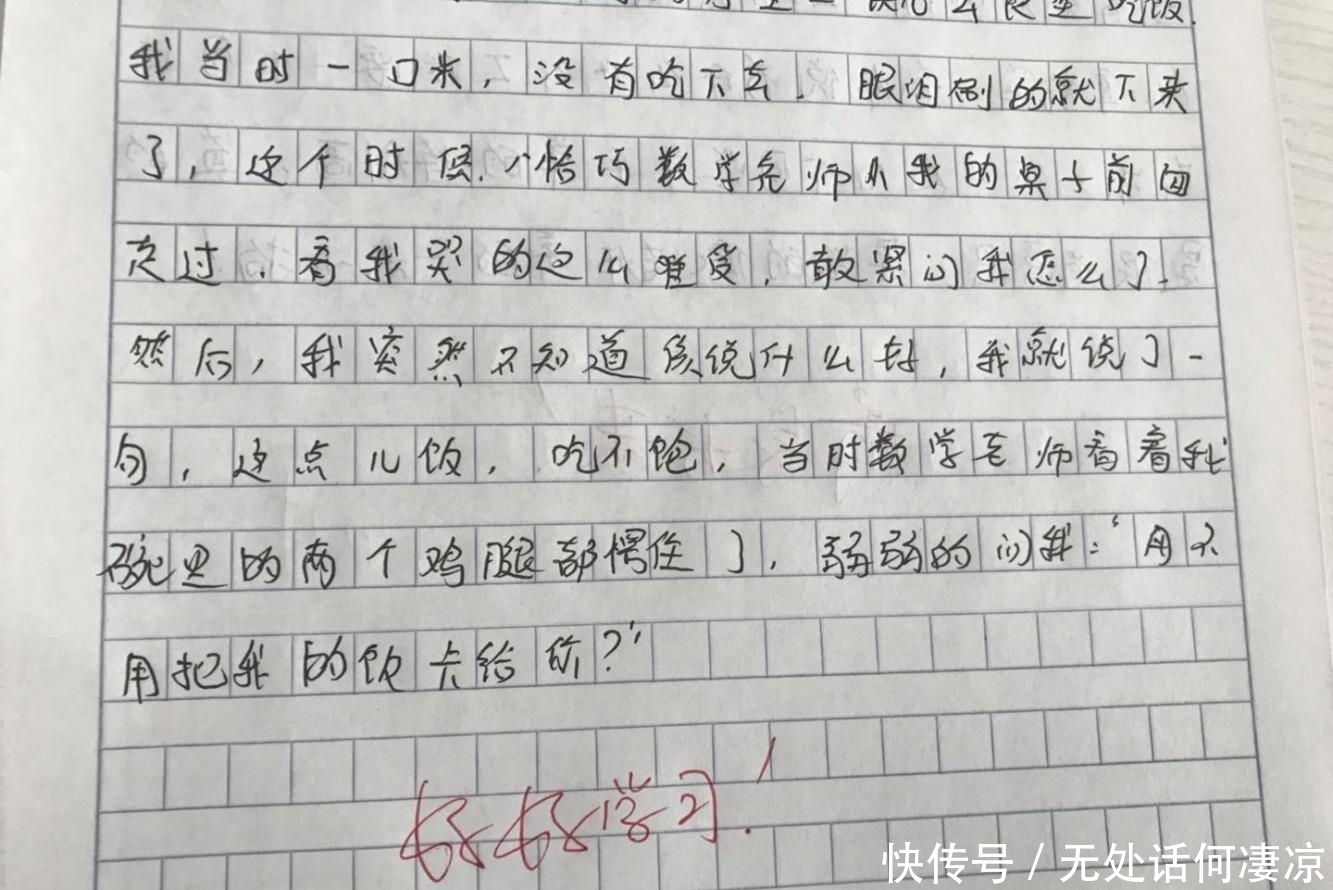 吃饭.
我当时一口米,没有吃下去.眼泪刷的就下来
了,这个时候.恰巧数学老师从我的桌子前面
走过.看我哭的这么难受.敢紧问我怎么了.
然后,我突然不知道该说什么好,我就说了一
句,这点儿饭,吃不饱,当时数学老师看着我
碗里的两个鸡腿都愣住了.弱弱的问我:"用不
用把我的饭卡给你?"
好好学习!
快传号/无处话何凄凉